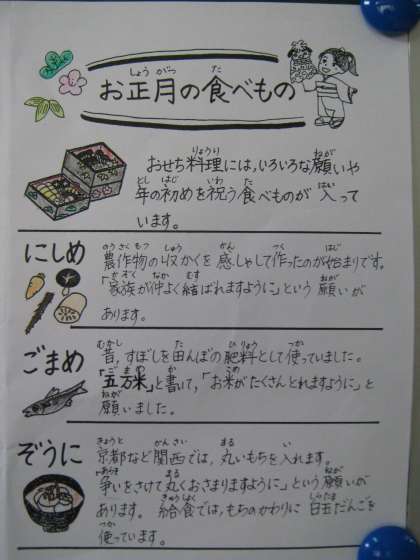 お正月の食べもの
おせち料理には、いろいろな願いや
年の初めを祝う食べものが入って
います。
にしめ
農作物の収かくを感しゃして作ったのが始まりです。
「家族が仲よく結ばれますように」という願いが
あります。
ごまめ
昔、すぼしを田んぼの肥料として使っていました。
「五万米」と書いて、「お米がたくさんとれますように」と
願いました。
ぞうに
京都など関西では、丸いもちを入れます。
「争いをさけて丸くおさまりますように」という願いが
あります。給食では、もちのかわりに白玉だんごを
使っています。